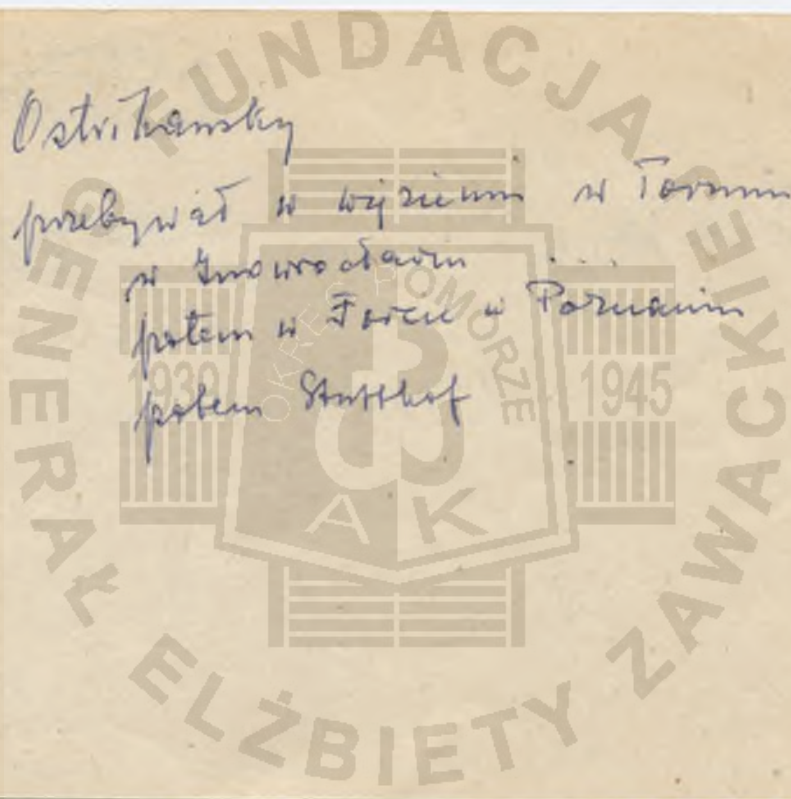 Ostrihansky
przebywał w więzieniu w Toruniu
w Inowrocławiu ....
potem w Forcie w Poznaniu
potem Stutthof
FUNDACJA GENERAŁ ELŻBIETY ZAWACKIEJ
OKRĘG POMORZE
1939 1945
AK